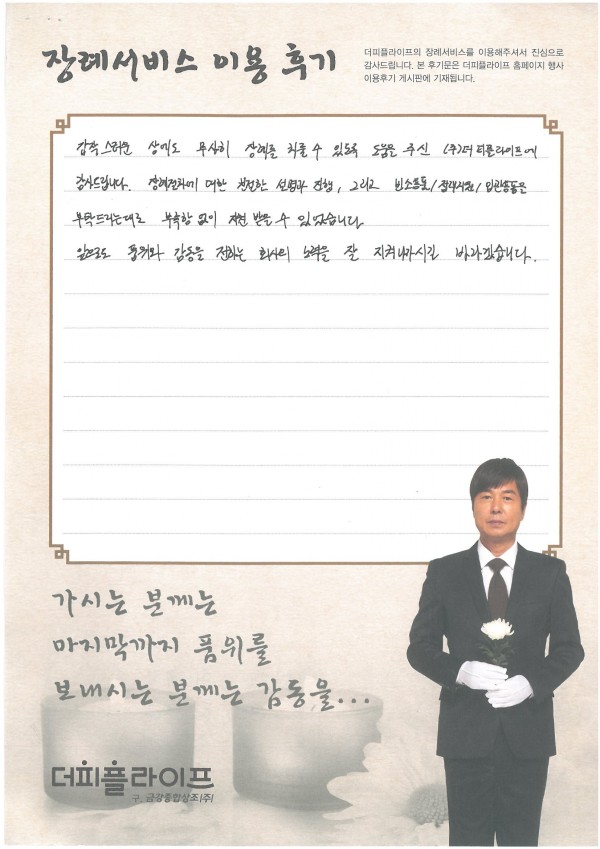 장례서비스 이용 후기
더피플라이프의 장례서비스를 이용해주셔서 진심으로
감사드립니다. 본 후기문은 더피플라이프 홈페이지 행사
이용후기 게시판에 기재됩니다.
갑작스러운 상에도 무사히 장례를 치룰 수 있도록 도움을 주신 (주)더피플라이프에
감사드립니다. 장례절차에 대한 설명과 진행, 그리고 빈소용품/접객지원/입관용품등
부탁드리는대로 부족함 없이 지원 받을 수 있었습니다.
앞으로도 품위와 감동을 전하는 회사의 노력을 잘 지켜나가시길 바라겠습니다.
가시는 분께는
마지막까지 품위를
보내시는 분께는 감동을...
더피플라이프
구. 금강종합상조(주)